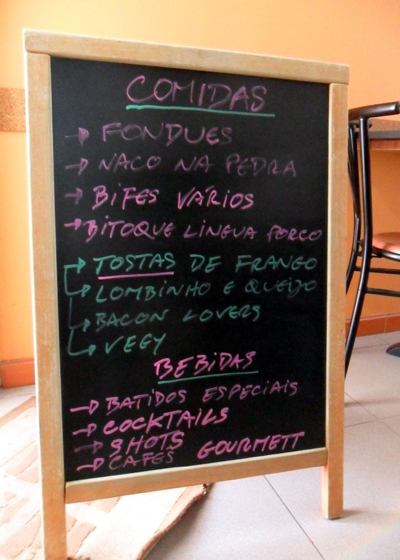 COMIDAS
→ FONDUES
→ NACO NA PEDRA
→ BIFES VÁRIOS
→ BITOQUE LINGUA PORCO
→ TOSTAS DE FRANGO
→ LOMBINHO E QUEIJO
→ BACON LOVERS
→ VEGY
BEBIDAS
→ BATIDOS ESPECIAIS
→ COCKTAILS
→ SHOTS
→ CAFÉS GOURMETT